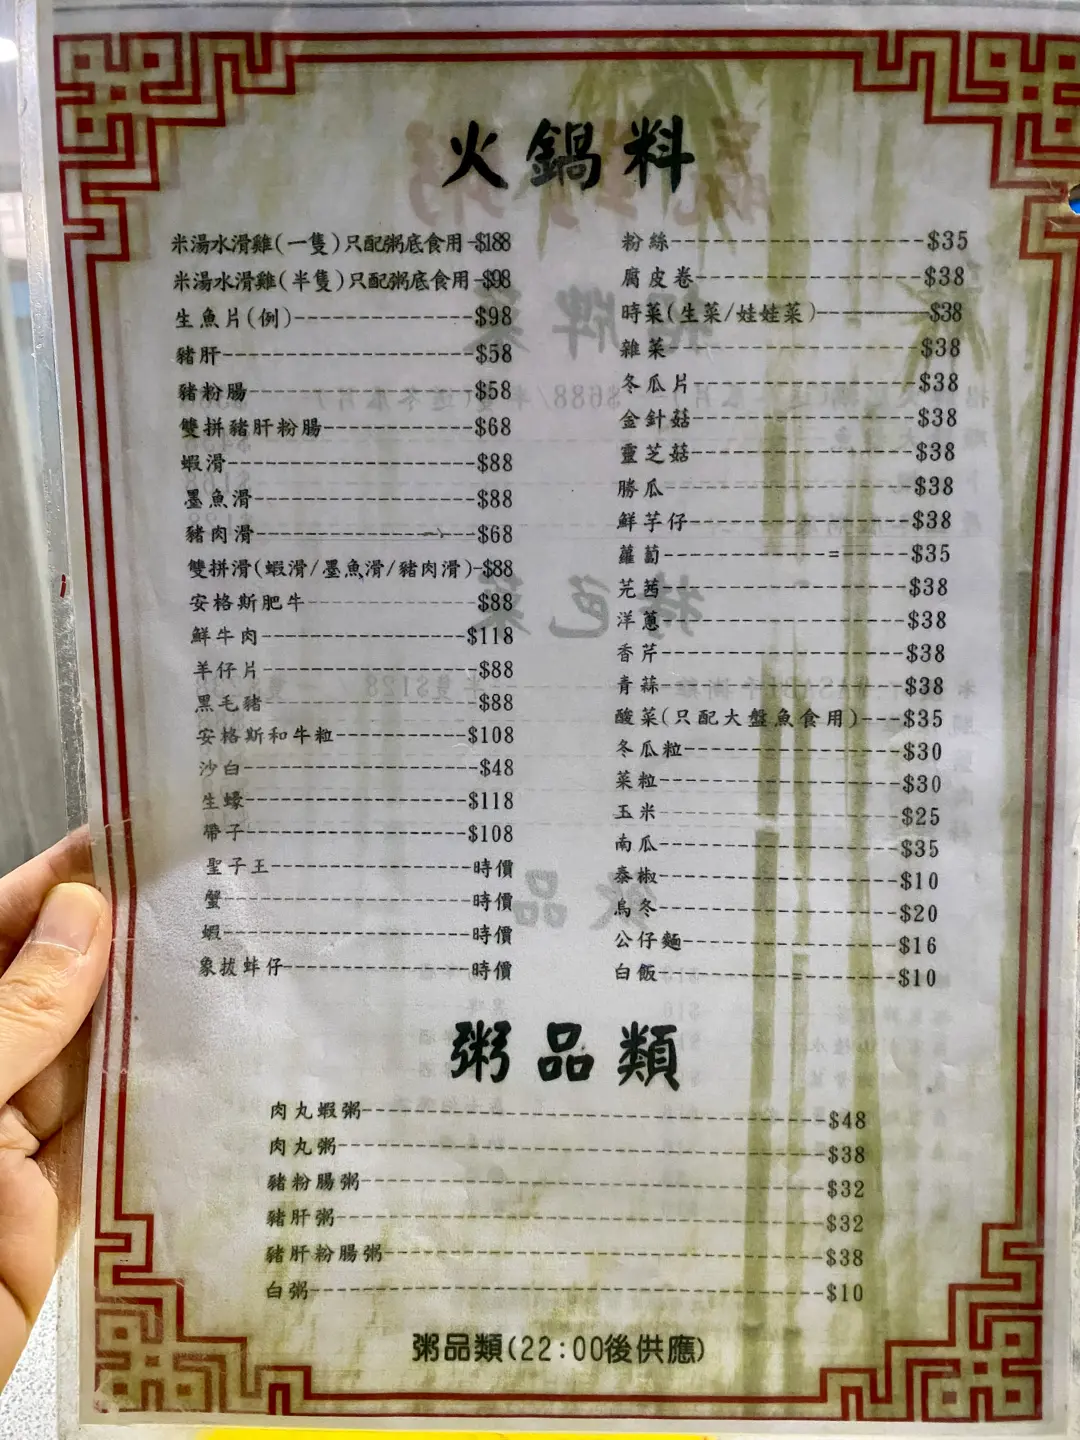 火鍋料
米湯水滑雞(一隻)只配粥底食用-$188
米湯水滑雞(半隻)只配粥底食用-$98
生魚片(例)-$98
豬肝-$58
豬粉腸-$58
雙拼豬肝粉腸-$68
蝦滑-$88
墨魚滑-$88
豬肉滑-$68
雙拼滑(蝦滑/墨魚滑/豬肉滑)-$88
安格斯肥牛-$88
鮮牛肉-$118
羊仔片-$88
黑毛豬-$88
安格斯和牛粒-$108
沙白-$48
生蠔-$118
帶子-$108
聖子王-時價
蟹-時價
蝦-時價
象拔蚌仔-時價
粉絲-$35
腐皮卷-$38
時菜(生菜/娃娃菜)-$38
雜菜-$38
冬瓜片-$38
金針菇-$38
靈芝菇-$38
勝瓜-$38
鮮芋仔-$38
蘿蔔-$35
芫茜-$38
洋蔥-$38
香芹-$38
青蒜-$38
酸菜(只配大盤魚食用)-$35
冬瓜粒-$30
菜粒-$30
玉米-$25
南瓜-$35
泰椒-$10
烏冬-$20
公仔麵-$16
白飯-$10
粥品類
肉丸蝦粥-$48
肉丸粥-$38
豬粉腸粥-$32
豬肝粥-$32
豬肝粉腸粥-$38
白粥-$10
粥品類(22:00後供應)